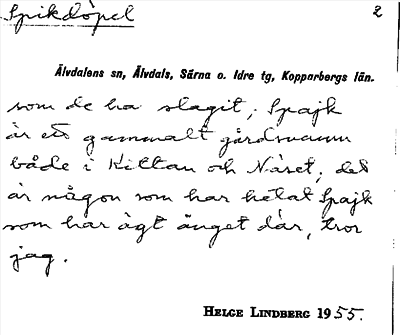 Spikdöpel 2
Älvdalens sn, Älvdals, Särna o. Idre tg, Kopparbergs län.
som de ha slagit; Spajk
är ett gammalt gårdsnamn
både i Kittan och Näset; det
är någon som har hetat Spajk
som har ägt änget där, tror
jag.
HELGE LINDBERG 1955.